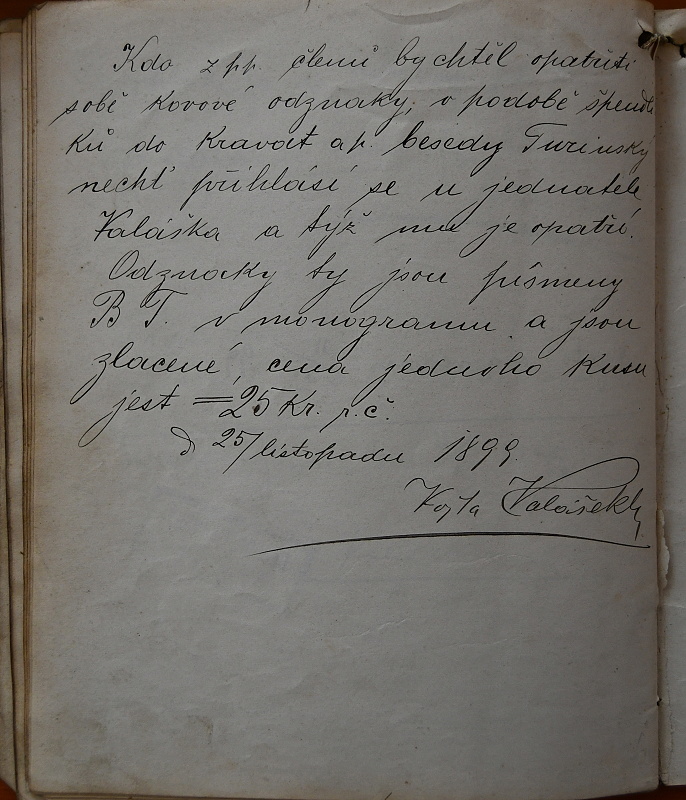 Kdo z pp. členů by chtěl opatřiti
sobě kovové odznaky, v podobě špendlí
ků do kravat ap. besedy Turinský
nechť přihlásí se u jednatele
Valáška a týž mu je opatří.
Odznaky ty jsou písmeny
B T. v monogramu a jsou
zlacené, cena jednoho kusu
jest = 25 Kr. r. č.
D 25/listopadu 1899.
Vojta Valášek